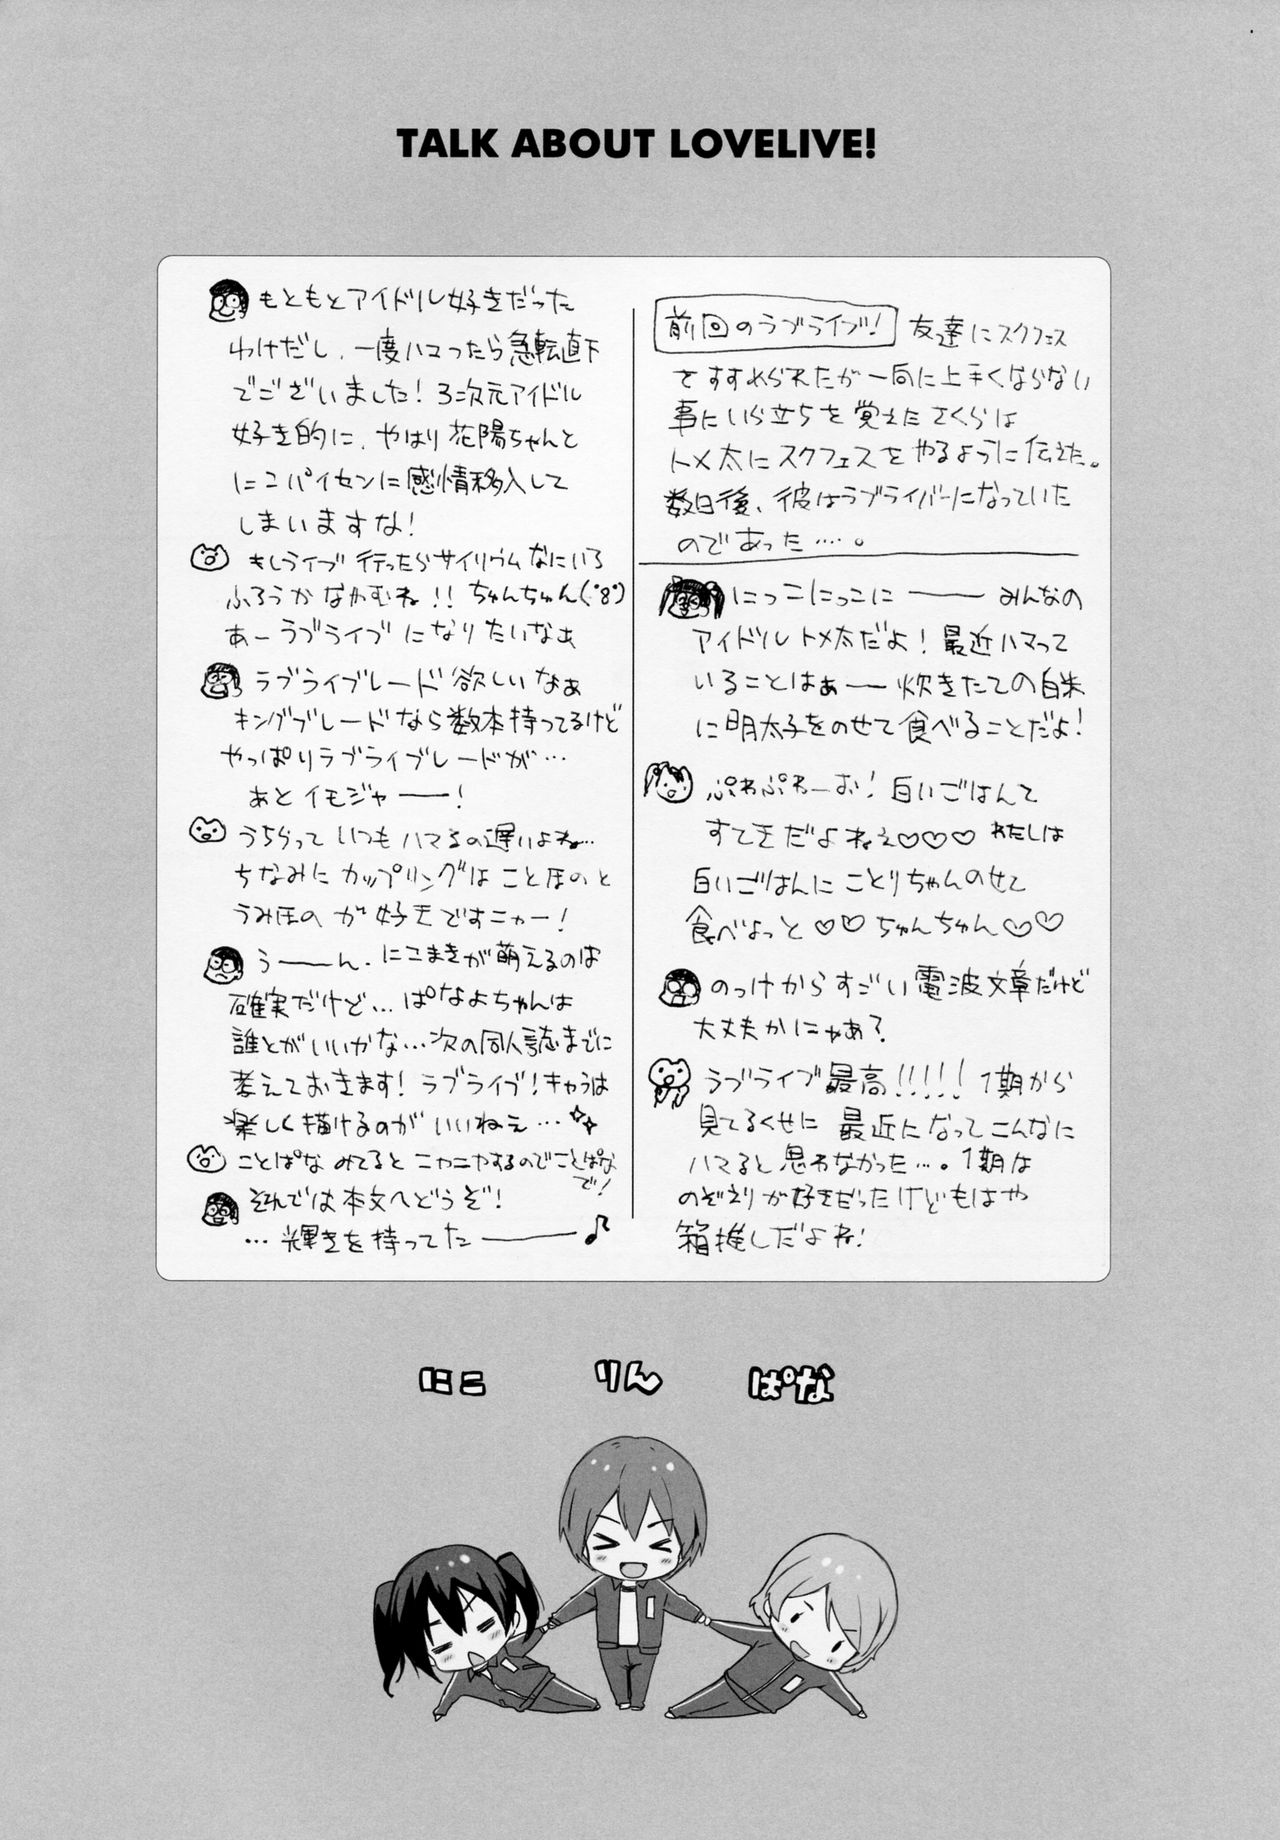 TALK ABOUT LOVELIVE!
前回のラブライブ! 友達にスクフェス
をすすめられたが一向に上手くならない
事にいら立ちを覚えたさくらは
トメ太にスクフェスをやるように伝えた。
数日後、彼はラブライバーになっていた
のであった……。
にっこにっこにーーー みんなの
アイドルトメ太だよ!最近ハマって
いることはぁーー炊きたての白米
に明太子をのせて食べることだよ!
ぷわぷわーお!白いごはんて
すてキだよねぇ♡♡♡ わたしは
白いごはんにことりちゃんのせて
食べよっと♡♡ちゅんちゅん♡♡
のっけからすごい電波文章だけど
大丈夫かにゃあ?
ラブライブ最高!!!!! 1期から
見てるくせに最近になってこんなに
ハマると思わなかった…。1期は
のぞえりが好きだったけどもはや
箱推しだよね!
もともとアイドル好きだった
わけだし、一度ハマったら急転直下
でございました!3次元アイドル
好き的に、やはり花陽ちゃんと
にこパイセンに感情移入して
しまいますな!
もしライブ行ったらサイリウムなにいろ
ふろうかなやむね!!ちゅんちゅん(・8・)
あーラブライブになりたいなぁ
ラブライブレード欲しいなぁ
キングブレードなら数本持ってるけど
やっぱりラブライブレードが…
あとイモジャーー!
うちらっていつもハマるの遅いよね…
ちなみにカップリングはことほのと
うみほのが好きですニャー!
うーーん、にこまきが萌えるのは
確実だけど…ぱなよちゃんは
誰とがいいかな…次の同人誌までに
考えておきます!ラブライブ!キャラは
楽しく描けるのがいいねぇ…
ことぱなみてるとニヤニヤするのでことぱな
で!
それでは本文へどうぞ!
…輝きを持ってたーーー♪
にこ りん ぱな